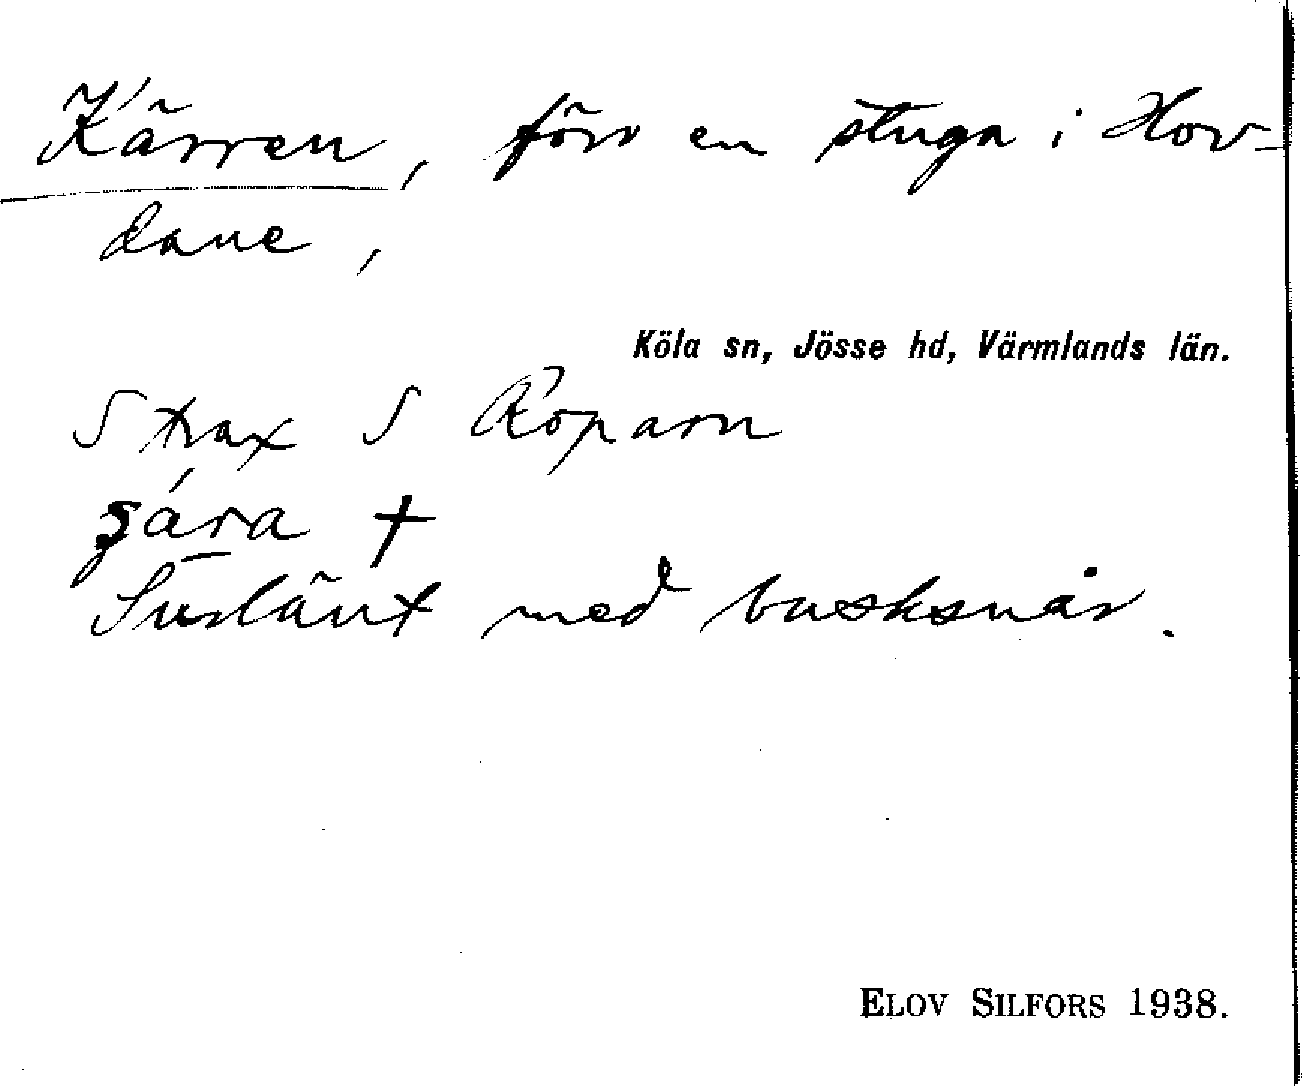 Kärren, förr en stuga i Hov-
dane,
Köla sn, Jösse hd, Värmlands län.
Strax S Roparn
†
Surlänt med busksnår.
ELOV SILFORS 1938.